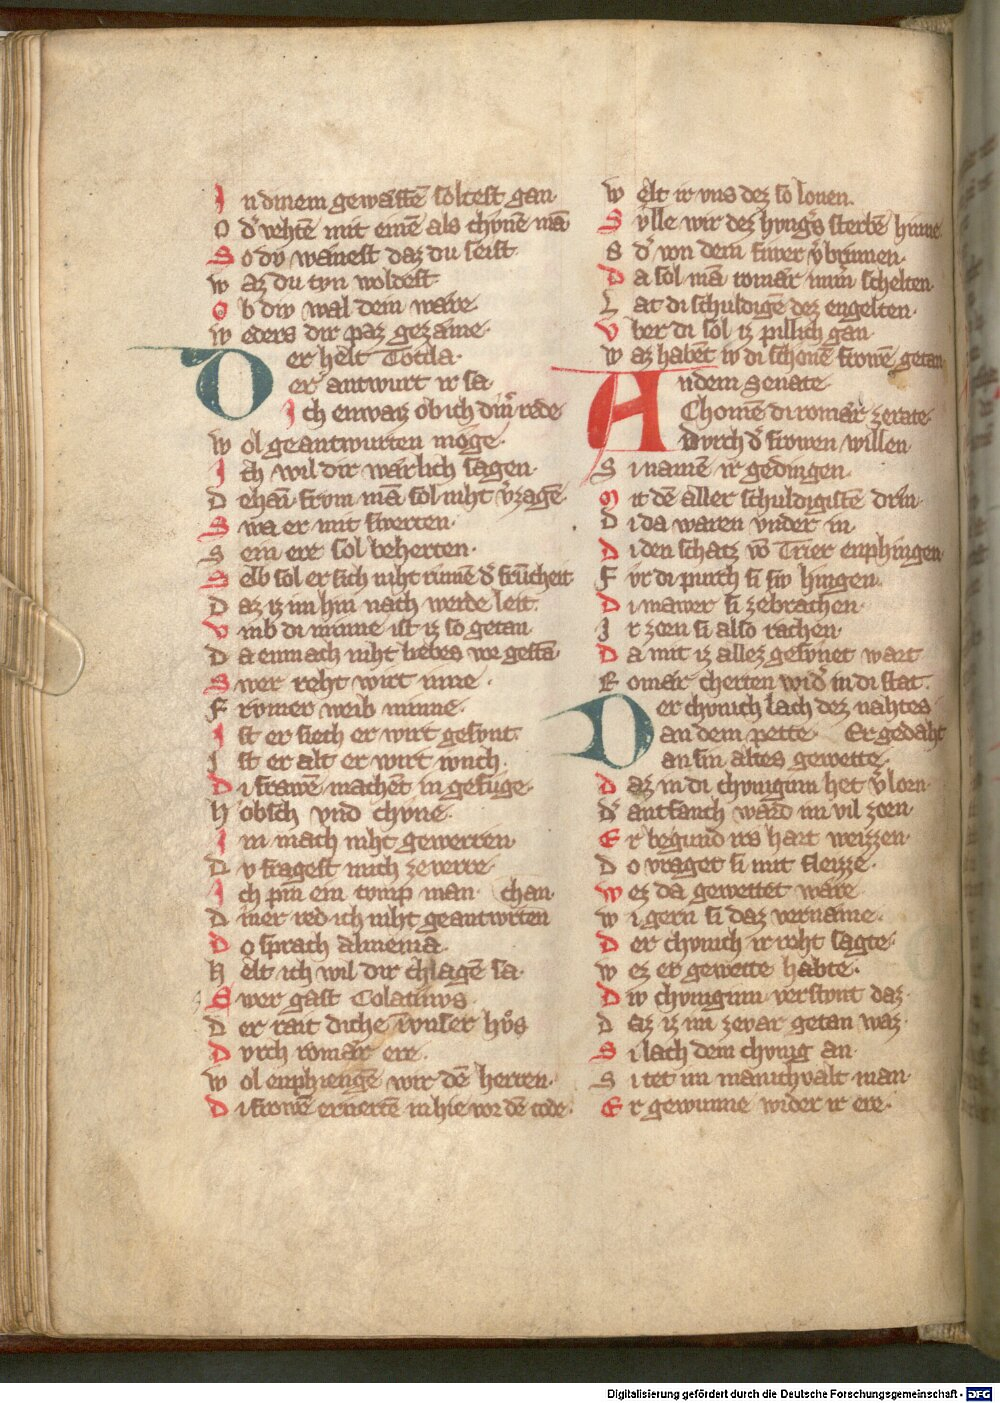 J n dinem gewæffē soltest gan·
O d' vehtē mit einē als chvͤnē mā
S o dv wænest daz du seist·
w az du tvn woldest·
O b div wal dem wære·
w eders dir paz gezæme·
D er helt Totila·
er antwurt ir sa·
J ch enwaiz ob ich din' rede
w ol geantwurten mͤoge·
J ch wil dir wærlich sagen·
D ehaī frvm mā sol niht v'zagē·
S wa er mit swerten·
S ein ere sol beherten·
S elb sol er sich niht rvmē d' frūcheit
D az iz im hin nach werde leit·
v mb di minne ist iz so getan·
D a enmach niht liebes vor gestā·
S wer reht wirt inne·
F rvmer weib minne·
J st er siech er wirt gesvnt·
J st er alt er wirt ivnch·
D i frawē machent in gefuͤge·
H ͤobsch vnd chvͤne·
J m mach niht gewerren·
D v fragest mich ze verre·
J ch pin ein tvmp man· chan·
D iner red ich niht geantwrten
D o sprach almenia·
H elt ich wil dir chlagē sa·
S wer gast Colatinvs·
D er rait diche in vnser hv̊s
D vrch romær ere·
w ol enphiengē wir dē herren·
D i frowē ernertē in hie vor dē tode·
w elt ir vns dez so lonen·
S vlle wir dez hvng's sterbē hinne·
S d' von dem fiwer v'brinnen·
D a sol mā romær nim' schelten·
L at di schuldigē dez engelten·
v ber di sol iz pillich gan·
w az habēt iv di schonē frowē getan
A n dem Senate
Chomē di romær zerate·
dvrch d' frowen willen·
S i namē ir gedingen·
M it dē aller schuldigistē drin·
D i da waren vnder in·
D i den schatz vō Trier enphingen·
F vr di purch si siv hingen·
D i mawer si zebrachen·
J r zorn si also rachen·
D a mit iz allez gesvnet wart
R omær cherten wid' in di stat·
D er chvnich lach dez nahtes
an dem pette· Er gedaht
an sin altes gewette·
D az in di chvniginn het v'lorn·
D' antfanch ward im vil zorn·
E r begund irs hart weizzen·
D o vraget si mit fleizze·
w ez da gewettet wære·
w i gern si daz vernæme·
D er chvnich ir roht sagte·
w ez er gewette habte·
D iv chvniginn verstvnt daz·
D az iz im zevar getan waz·
S i lach dem chvnig an·
S i tet im manichvalt man·
E r gewunne wider ir ere·
Digitalisierung gefördert durch die Deutsche Forschungsgemeinschaft - DFG